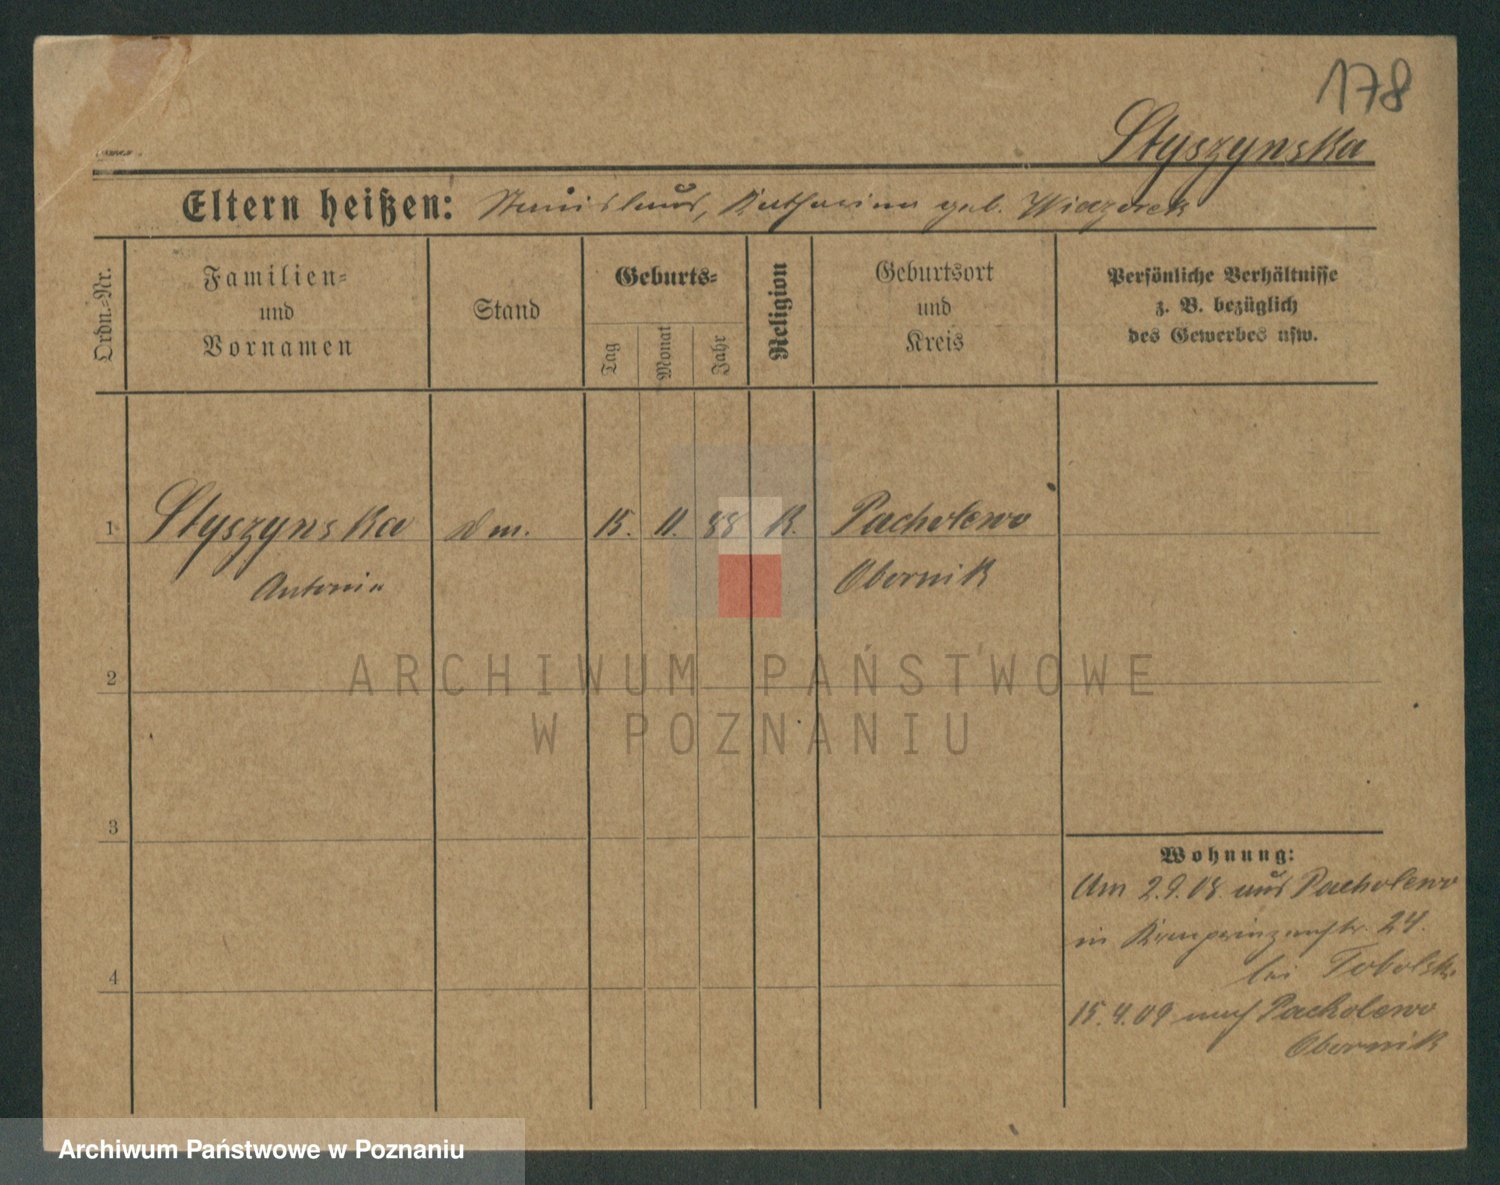 178
Styszynska
Eltern heißen: Stanislaus, Katharina geb. Wieczorek
Ordn.-Nr.
Familien-
und
Vornamen
Stand
Geburts-
Tag
Monat
Jahr
Religion
Geburtsort
und
Kreis
Persönliche Verhältnisse
z. B. bezüglich
des Gewerbes usw.
1 Styszynska 15. 11. 88 K. Pacholewo
Antonia Obornik
ARCHIWUM PAŃSTWOWE
W POZNANIU
2
3
4
Wohnung:
Am 2.9.08. aus Pacholewo
in Kronprinzenstr. 24.
bei Tobolski
15.4.09 nach Pacholewo
Obornik
Archiwum Państwowe w Poznaniu